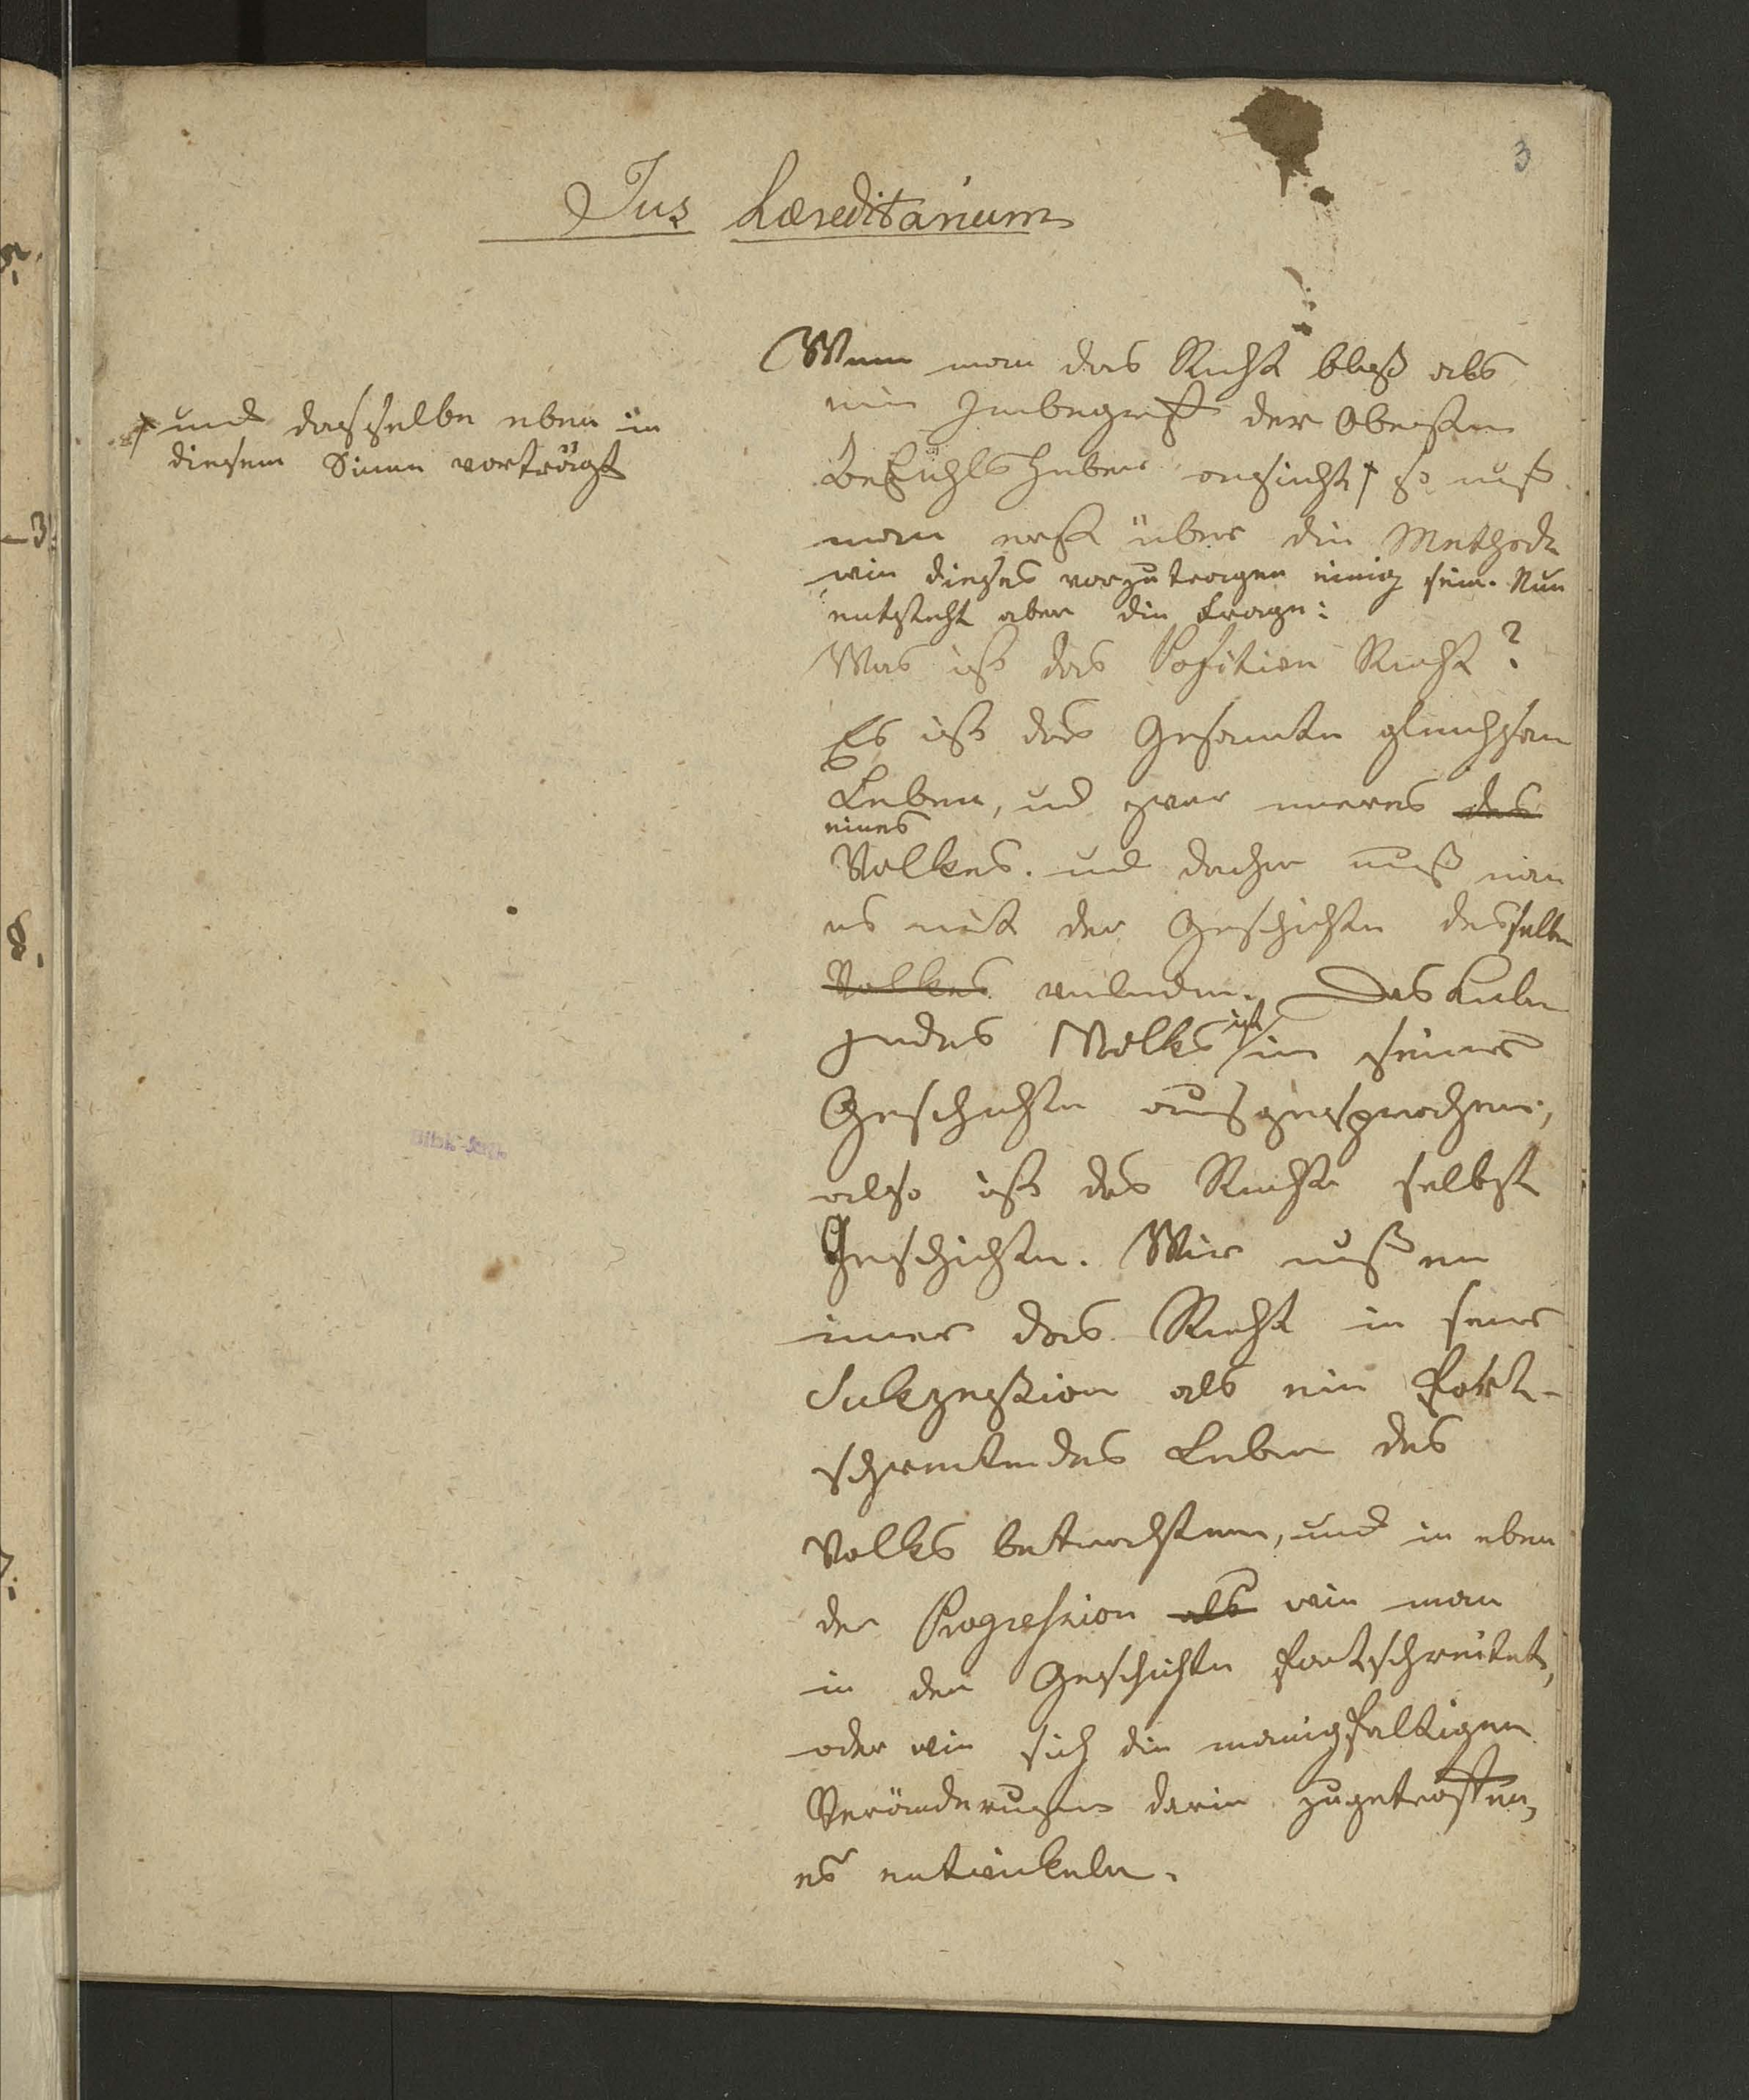 3
Jus hæreditarium
Wenn man das Recht bloß als
ein Inbegriff der Obersten
Befehlshaber ansieht † so muß
† und dasselbe eben in
diesem Sinne vorträgt
man erst über die Methode
wie dieses vorzutragen einig sein. Nun
entsteht aber die Frage:
Was ist das Positive Recht?
Es ist das Gesamte gleichsam
Leben, und zwar inneres des
eines
Volkes. und daher muß man
es mit der Geschichte desselben
Volkes verbinden. Das Leben
jedes Volks ist in seiner
Geschichte ausgesprochen,
also ist das Recht selbst
Geschichte. Wir mußen
imer das Recht in seiner
Sukzeßion als ein fort-
schreitendes Leben des
Volks betrachten, und in eben
der Progression als wie man
in der Geschichte fortschreitet,
oder wie sich die manigfaltigen
Veränderungen darin zugetroffen,
es entwickeln.
-3
8.